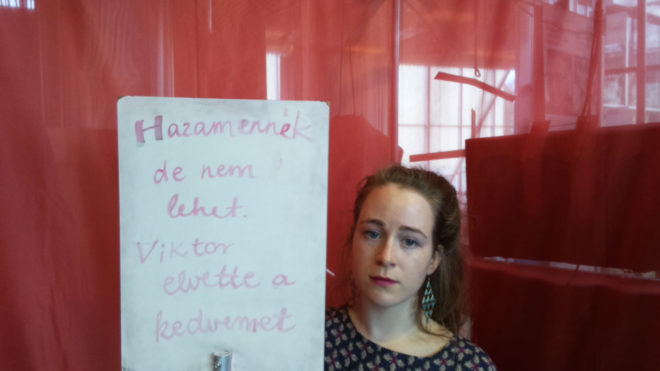 Hazamennék
de nem
lehet.
Viktor
elvette a
kedvemet